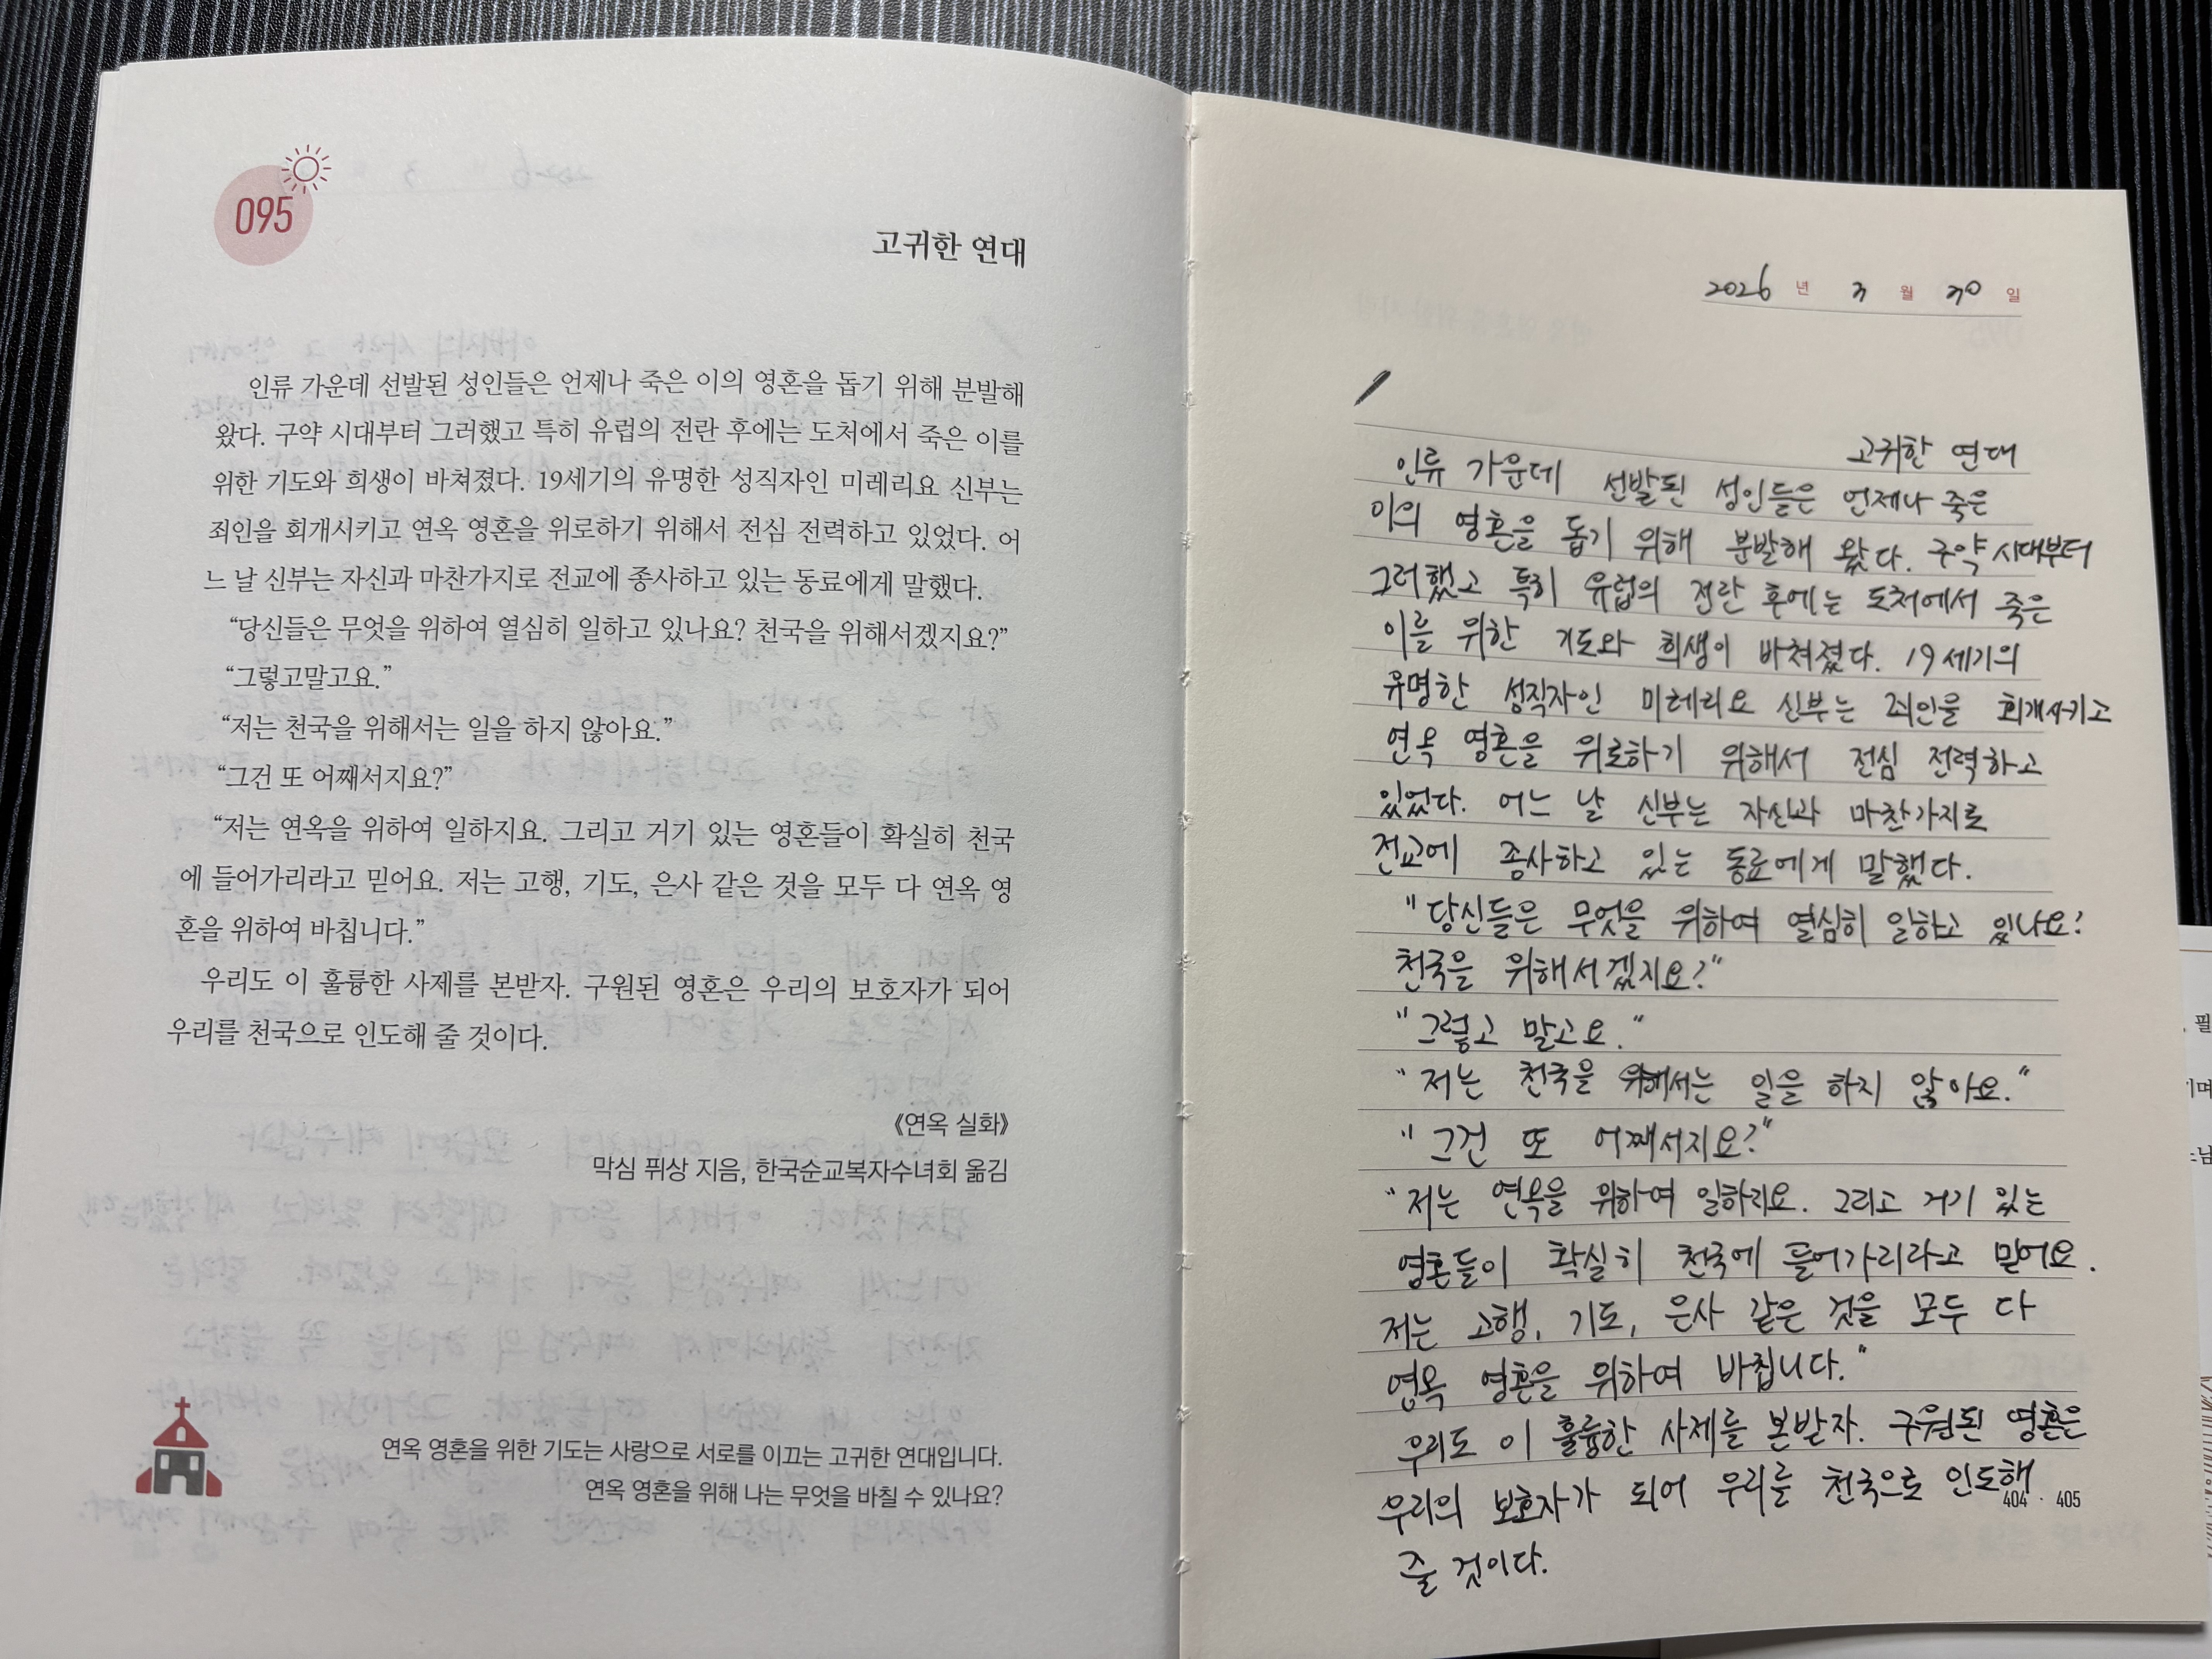 095
고귀한 연대
인류 가운데 선발된 성인들은 언제나 죽은 이의 영혼을 돕기 위해 분발해
왔다. 구약 시대부터 그러했고 특히 유럽의 전란 후에는 도처에서 죽은 이를
위한 기도와 희생이 바쳐졌다. 19세기의 유명한 성직자인 미레리요 신부는
죄인을 회개시키고 연옥 영혼을 위로하기 위해서 전심 전력하고 있었다. 어
느 날 신부는 자신과 마찬가지로 전교에 종사하고 있는 동료에게 말했다.
“당신들은 무엇을 위하여 열심히 일하고 있나요? 천국을 위해서겠지요?”
“그렇고말고요.”
“저는 천국을 위해서는 일을 하지 않아요.”
“그건 또 어째서지요?”
“저는 연옥을 위하여 일하지요. 그리고 거기 있는 영혼들이 확실히 천국
에 들어가리라고 믿어요. 저는 고행, 기도, 은사 같은 것을 모두 다 연옥 영
혼을 위하여 바칩니다.”
우리도 이 훌륭한 사제를 본받자. 구원된 영혼은 우리의 보호자가 되어
우리를 천국으로 인도해 줄 것이다.
《연옥 실화》
막심 퓌상 지음, 한국순교복자수녀회 옮김
연옥 영혼을 위한 기도는 사랑으로 서로를 이끄는 고귀한 연대입니다.
연옥 영혼을 위해 나는 무엇을 바칠 수 있나요?
2026 년 3 월 30 일
고귀한 연대
인류 가운데 선발된 성인들은 언제나 죽은
이의 영혼을 돕기 위해 분발해 왔다. 구약 시대부터
그러했고 특히 유럽의 전란 후에는 도처에서 죽은
이를 위한 기도와 희생이 바쳐졌다. 19세기의
유명한 성직자인 미레리요 신부는 죄인을 회개시키고
연옥 영혼을 위로하기 위해서 전심 전력하고
있었다. 어느 날 신부는 자신과 마찬가지로
전교에 종사하고 있는 동료에게 말했다.
"당신들은 무엇을 위하여 열심히 일하고 있나요?
천국을 위해서겠지요?"
"그렇고 말고요."
"저는 천국을 위해서는 일을 하지 않아요."
"그건 또 어째서지요?"
"저는 연옥을 위하여 일하지요. 그리고 거기 있는
영혼들이 확실히 천국에 들어가리라고 믿어요.
저는 고행, 기도, 은사 같은 것을 모두 다
연옥 영혼을 위하여 바칩니다."
우리도 이 훌륭한 사제를 본받자. 구원된 영혼은
우리의 보호자가 되어 우리를 천국으로 인도해
줄 것이다.
404 · 405